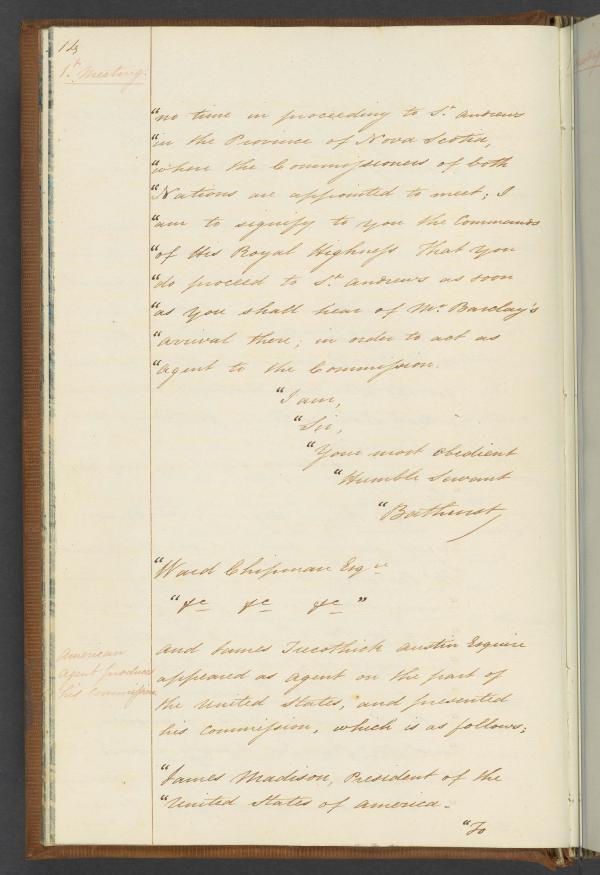 14
1st Meeting.
"no time in proceeding to St. Andrews
"in the Province of Nova Scotia,
"where the Commissioners of both
"Nations are appointed to meet; I
"am to signify to you the Commands
"of His Royal Highness that you
"do proceed to St. Andrews as soon
"as you shall hear of Mr. Barclay's
"arrival there; in order to act as
"Agent to the Commission.
"I am,
"Sir,
"Your most obedient
"Humble Servant
"Bathurst
"Ward Chipman Esqre
"&c &c &c"
American
Agent produces
his Commission
And James Trecothick Austin Esquire
appeared as Agent on the part of
the United States, and presented
his Commission, which is as follows;
"James Madison, President of the
"United States of America.
"To